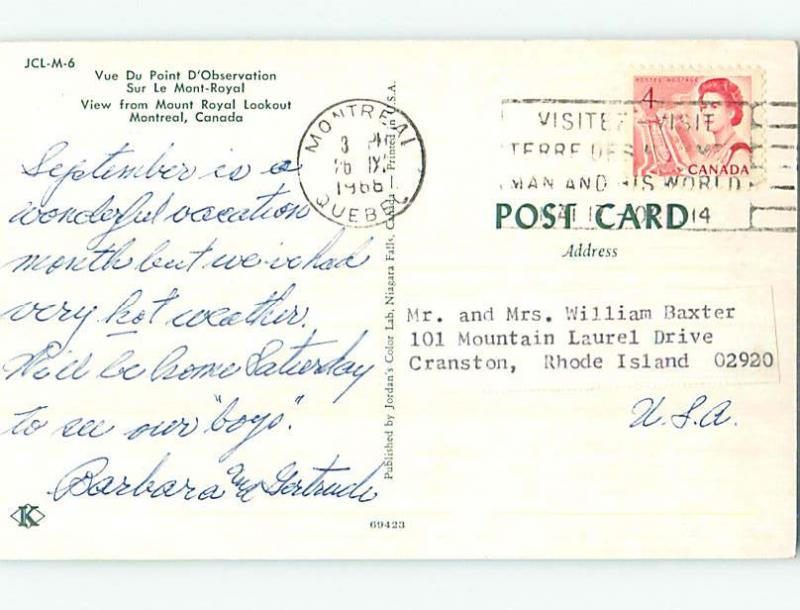 JCL-M-6
Vue Du Point D'Observation
Sur Le Mont-Royal
View from Mount Royal Lookout
Montreal, Canada
September is a
wonderful vacation
month but we've had
very hot weather.
We'll be home Saturday
to see our "boys".
Barbara and Gertrude
K
69423
Published by Jordan's Color Lab, Niagara Falls, Canada — Printed in U.S.A.
MONTREAL
3 PM
26 IX
1968
QUEBEC
VISITEZ-VISIT
TERRE DES
MAN AND HIS WORLD
14
POSTES POSTAGE
4
CANADA
POST CARD
Address
Mr. and Mrs. William Baxter
101 Mountain Laurel Drive
Cranston, Rhode Island 02920
U.S.A.